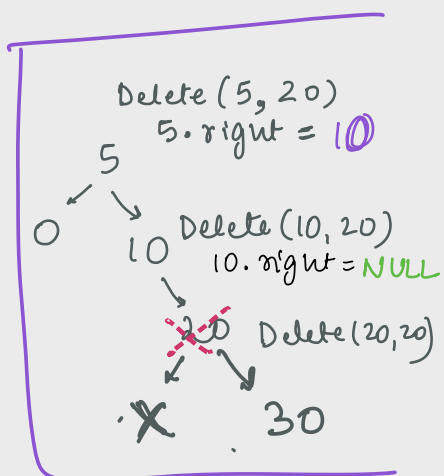 Delete (5, 20)
5. right = 10
5
0
10
Delete (10, 20)
10. right = NULL
20
Delete (20,20)
X
30